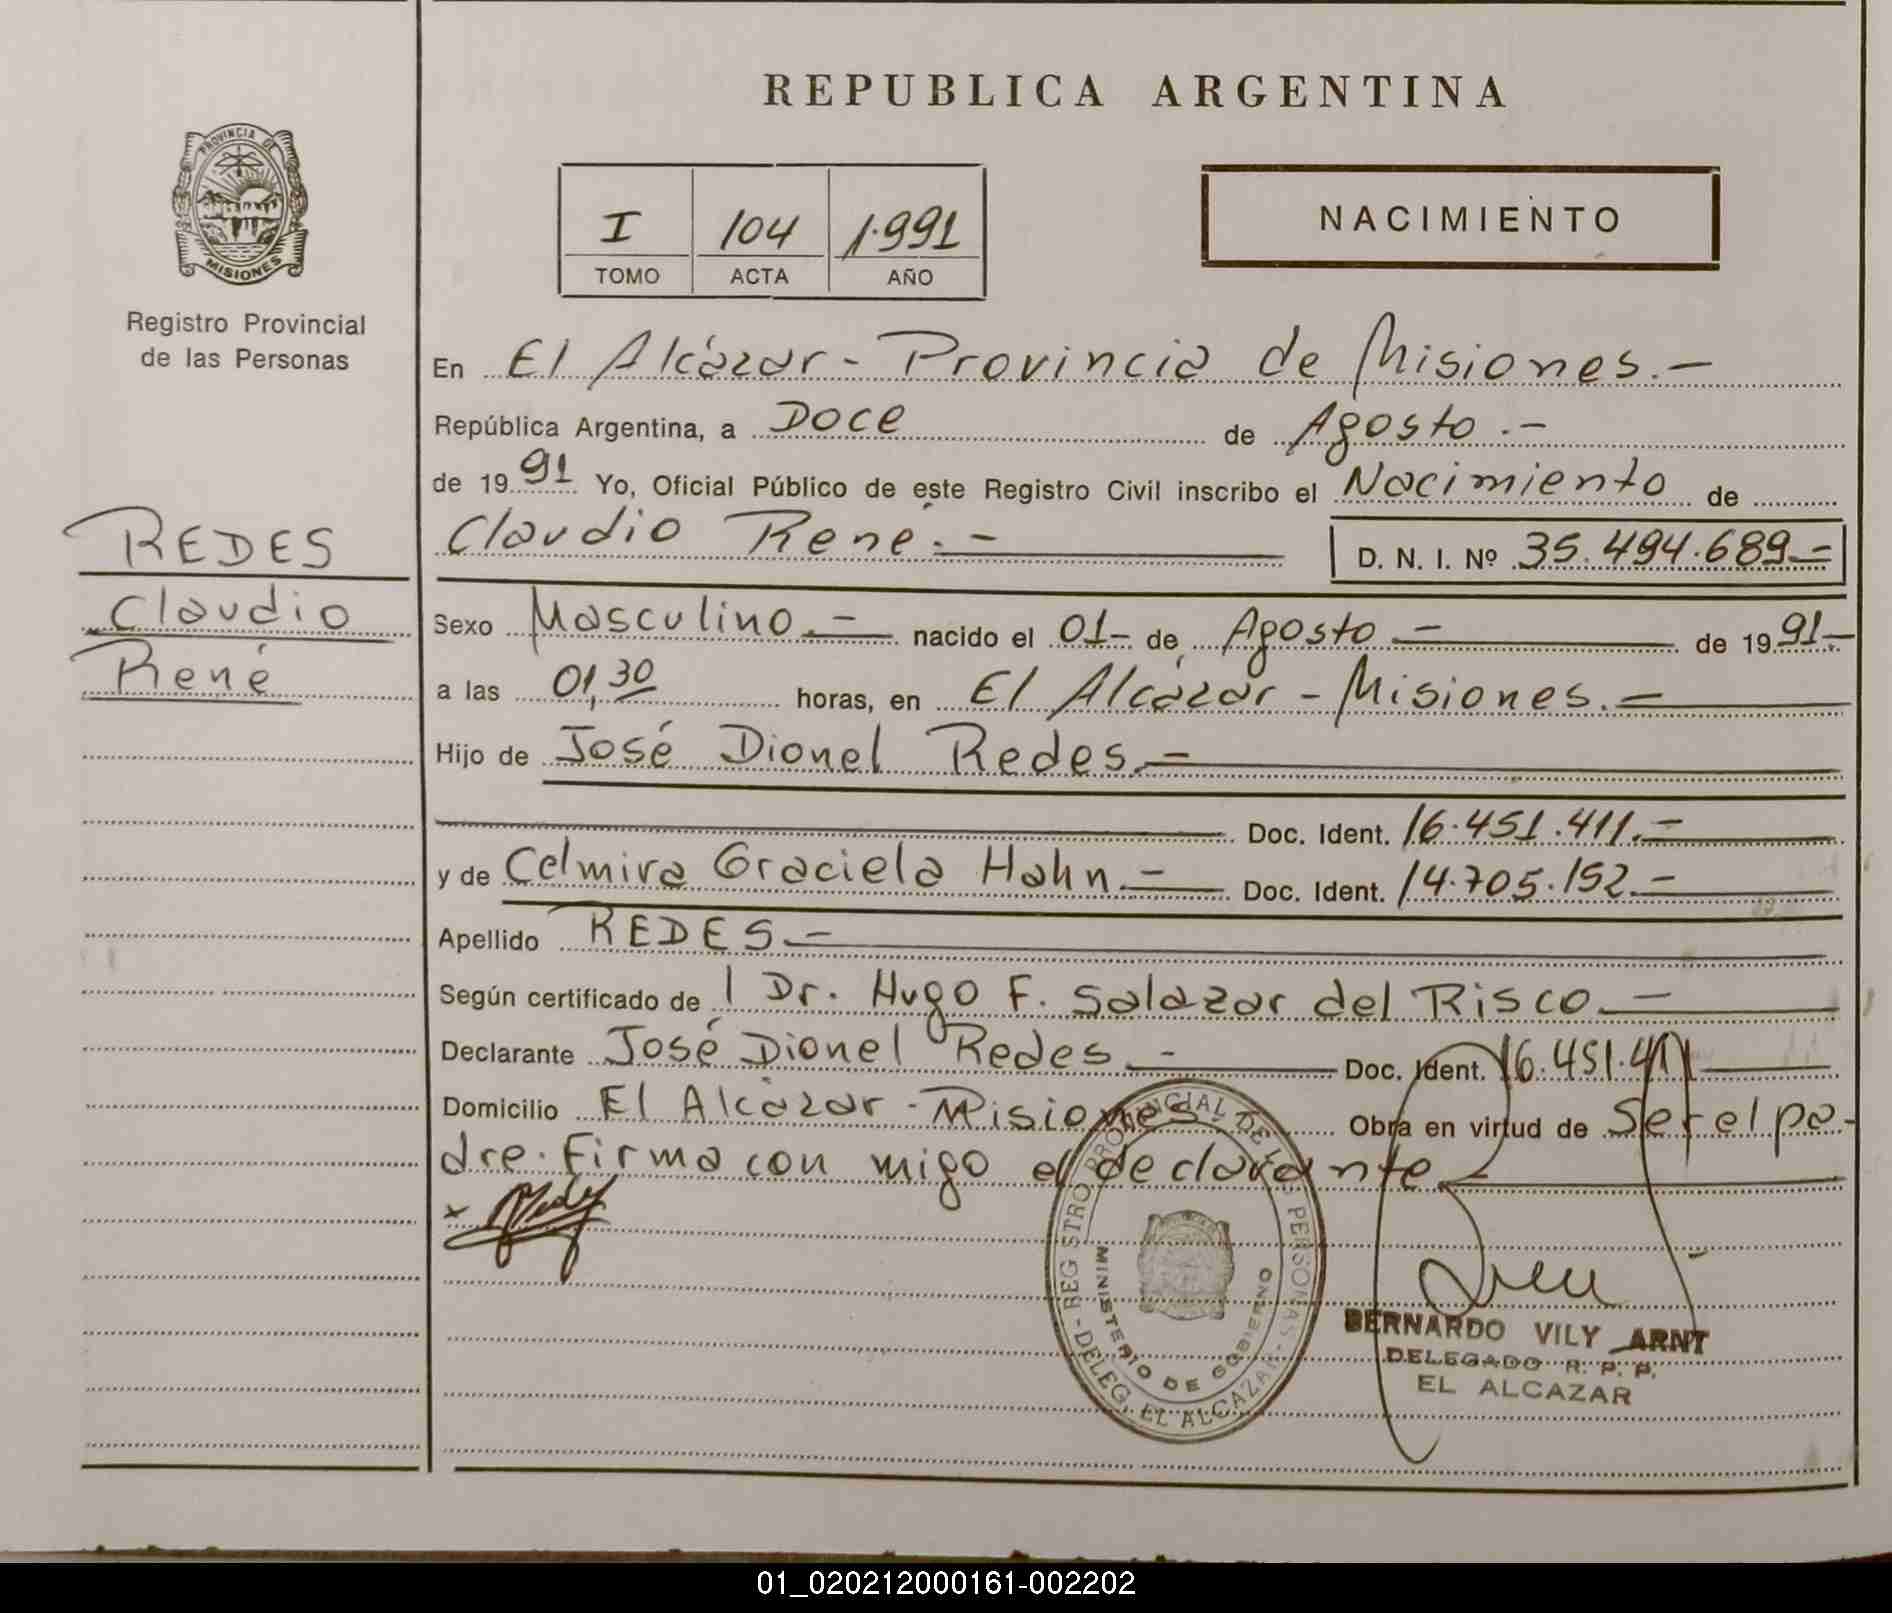 REPUBLICA ARGENTINA
PROVINCIA DE
MISIONES
Registro Provincial
de las Personas
I 104 1.991
TOMO ACTA AÑO
NACIMIENTO
En El Alcázar - Provincia de Misiones.-
República Argentina, a Doce de Agosto.-
de 1991 Yo, Oficial Público de este Registro Civil inscribo el Nacimiento de
Claudio René.- D. N. I. Nº 35.494.689.-
REDES
Claudio
René
Sexo Masculino.- nacido el 01- de Agosto - de 1991-
a las 01,30 horas, en El Alcázar - Misiones.-
Hijo de José Dionel Redes.-
Doc. Ident. 16.451.411.-
y de Celmira Graciela Hahn.- Doc. Ident. 14.705.152.-
Apellido REDES.-
Según certificado de l Dr. Hugo F. Salazar del Risco.-
Declarante José Dionel Redes.- Doc. Ident. 16.451.411
Domicilio El Alcázar - Misiones.- Obra en virtud de Ser el pa-
dre. Firma con migo el declarante.-
x
REGISTRO PROVINCIAL DE LAS PERSONAS
MINISTERIO DE GOBIERNO
- DELEG. EL ALCAZAR -
BERNARDO VILY ARNT
DELEGADO R. P. P.
EL ALCAZAR
01_020212000161-002202